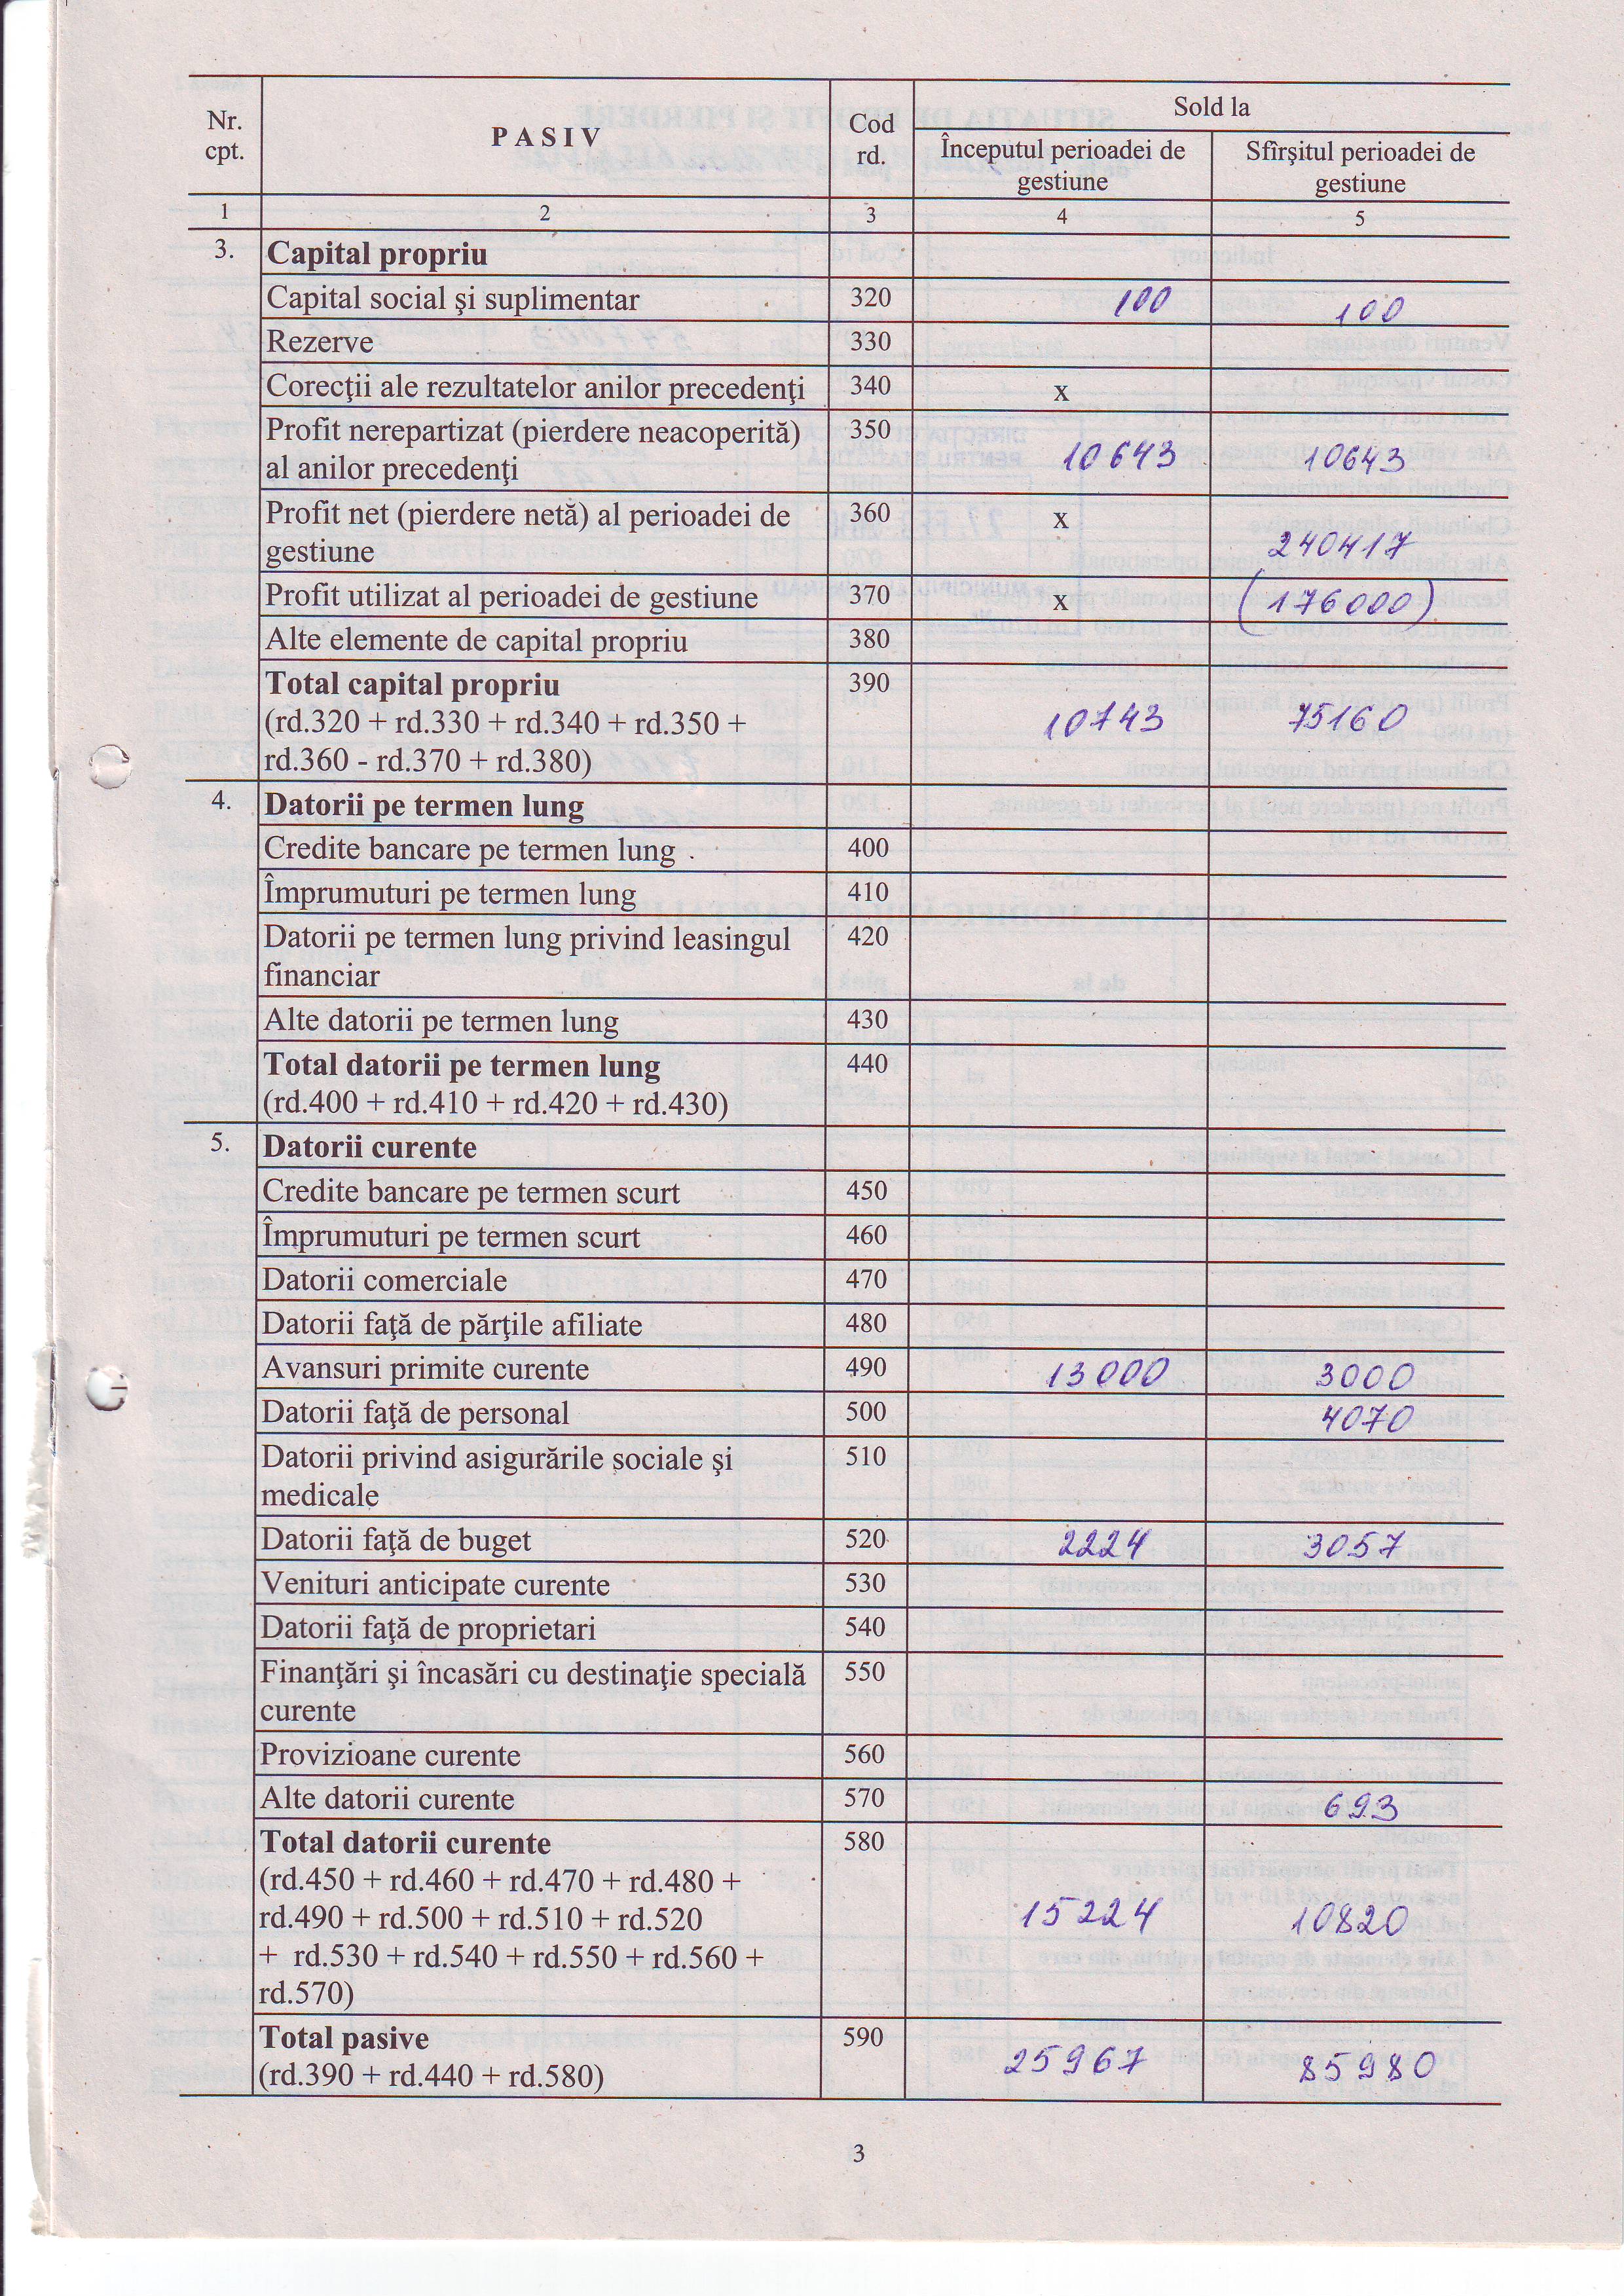 Nr. cpt.
P A S I V
Cod rd.
Sold la
Începutul perioadei de gestiune
Sfîrşitul perioadei de gestiune
1 2 3 4 5
3. Capital propriu
Capital social şi suplimentar 320 100 100
Rezerve 330
Corecţii ale rezultatelor anilor precedenţi 340 x
Profit nerepartizat (pierdere neacoperită) 350
al anilor precedenţi 10643 10643
Profit net (pierdere netă) al perioadei de 360 x
gestiune 240417
Profit utilizat al perioadei de gestiune 370 x (176000)
Alte elemente de capital propriu 380
Total capital propriu 390
(rd.320 + rd.330 + rd.340 + rd.350 + 10743 75160
rd.360 - rd.370 + rd.380)
4. Datorii pe termen lung
Credite bancare pe termen lung 400
Împrumuturi pe termen lung 410
Datorii pe termen lung privind leasingul 420
financiar
Alte datorii pe termen lung 430
Total datorii pe termen lung 440
(rd.400 + rd.410 + rd.420 + rd.430)
5. Datorii curente
Credite bancare pe termen scurt 450
Împrumuturi pe termen scurt 460
Datorii comerciale 470
Datorii faţă de părţile afiliate 480
Avansuri primite curente 490 13000 3000
Datorii faţă de personal 500 4070
Datorii privind asigurările sociale şi 510
medicale
Datorii faţă de buget 520 2224 3057
Venituri anticipate curente 530
Datorii faţă de proprietari 540
Finanţări şi încasări cu destinaţie specială 550
curente
Provizioane curente 560
Alte datorii curente 570 693
Total datorii curente 580
(rd.450 + rd.460 + rd.470 + rd.480 +
rd.490 + rd.500 + rd.510 + rd.520 15224 10820
+ rd.530 + rd.540 + rd.550 + rd.560 +
rd.570)
Total pasive 590
(rd.390 + rd.440 + rd.580) 25967 85980
3